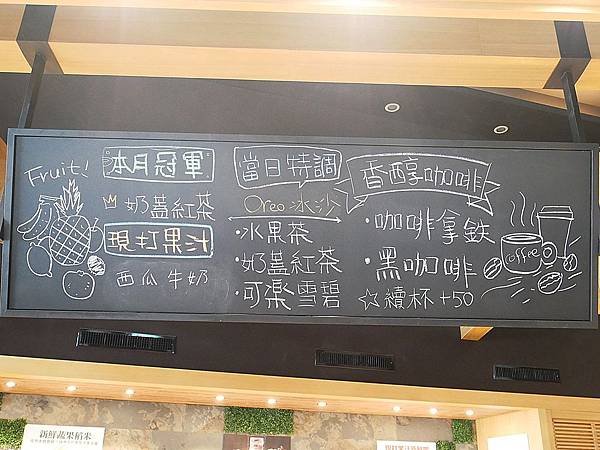 Fruit!
本月冠軍
奶蓋紅茶
現打果汁
西瓜牛奶
當日特調
Oreo冰沙
·水果茶
·奶蓋紅茶
·可樂雪碧
香醇咖啡
·咖啡拿鐵
·黑咖啡
☆續杯+50
coffee
新鮮蔬果稻米